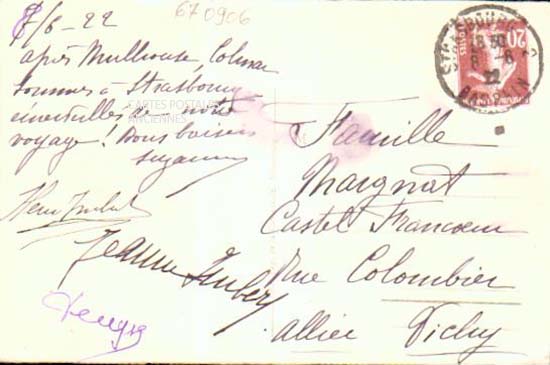 8/6-22
670906
après Mulhouse, Colmar
sommes à Strasbourg
émerveillés de notre
voyage ! Bons baisers
Suzanne
CARTES POSTALES
ANCIENNES
Jeanne Imbert
STRASBOURG
18 30
8 -6
22
BAS RHIN
20
POSTES
Famille
Maignat
Castel Francœur
Rue Colombier
Allier Vichy